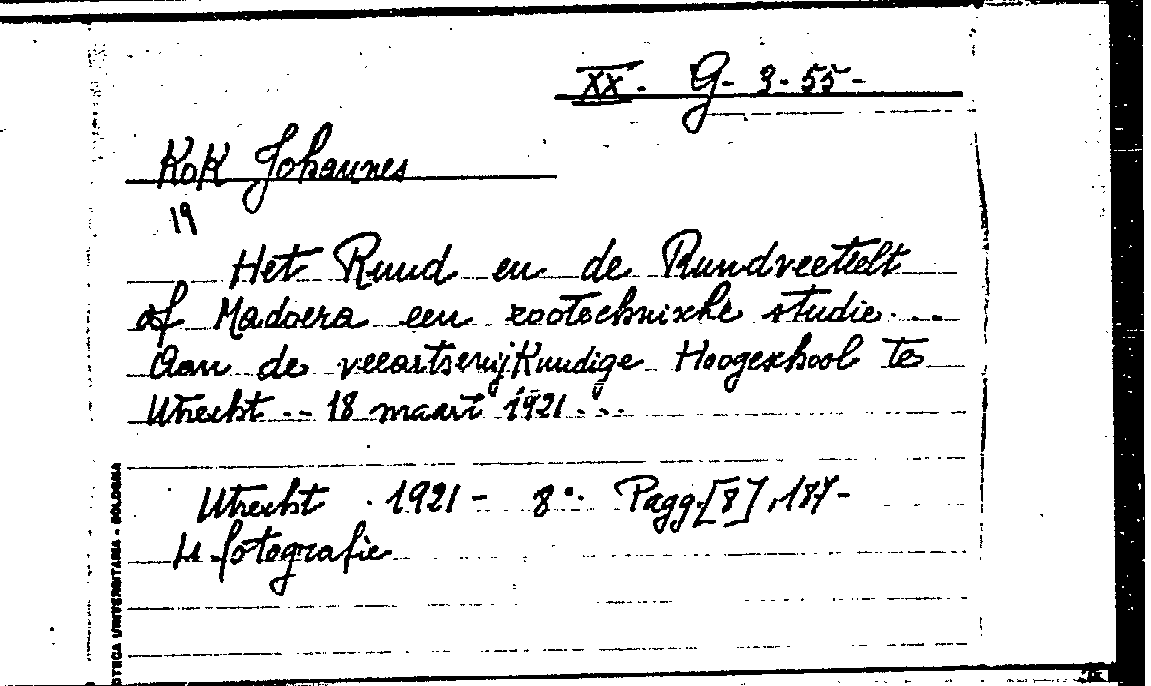 XX. G. 3. 55-
Kok Johannes
19
Het Rund en de Rundveeteelt
of Madoera een zootechnische studie...
Aan de veeartsenijkundige Hoogeschool te
Utrecht -- 18 maart 1921...
Utrecht . 1921 - 8°. Pagg. [8], 187-
fotografie
OTECA UNIVERSITARIA - BOLOGNA